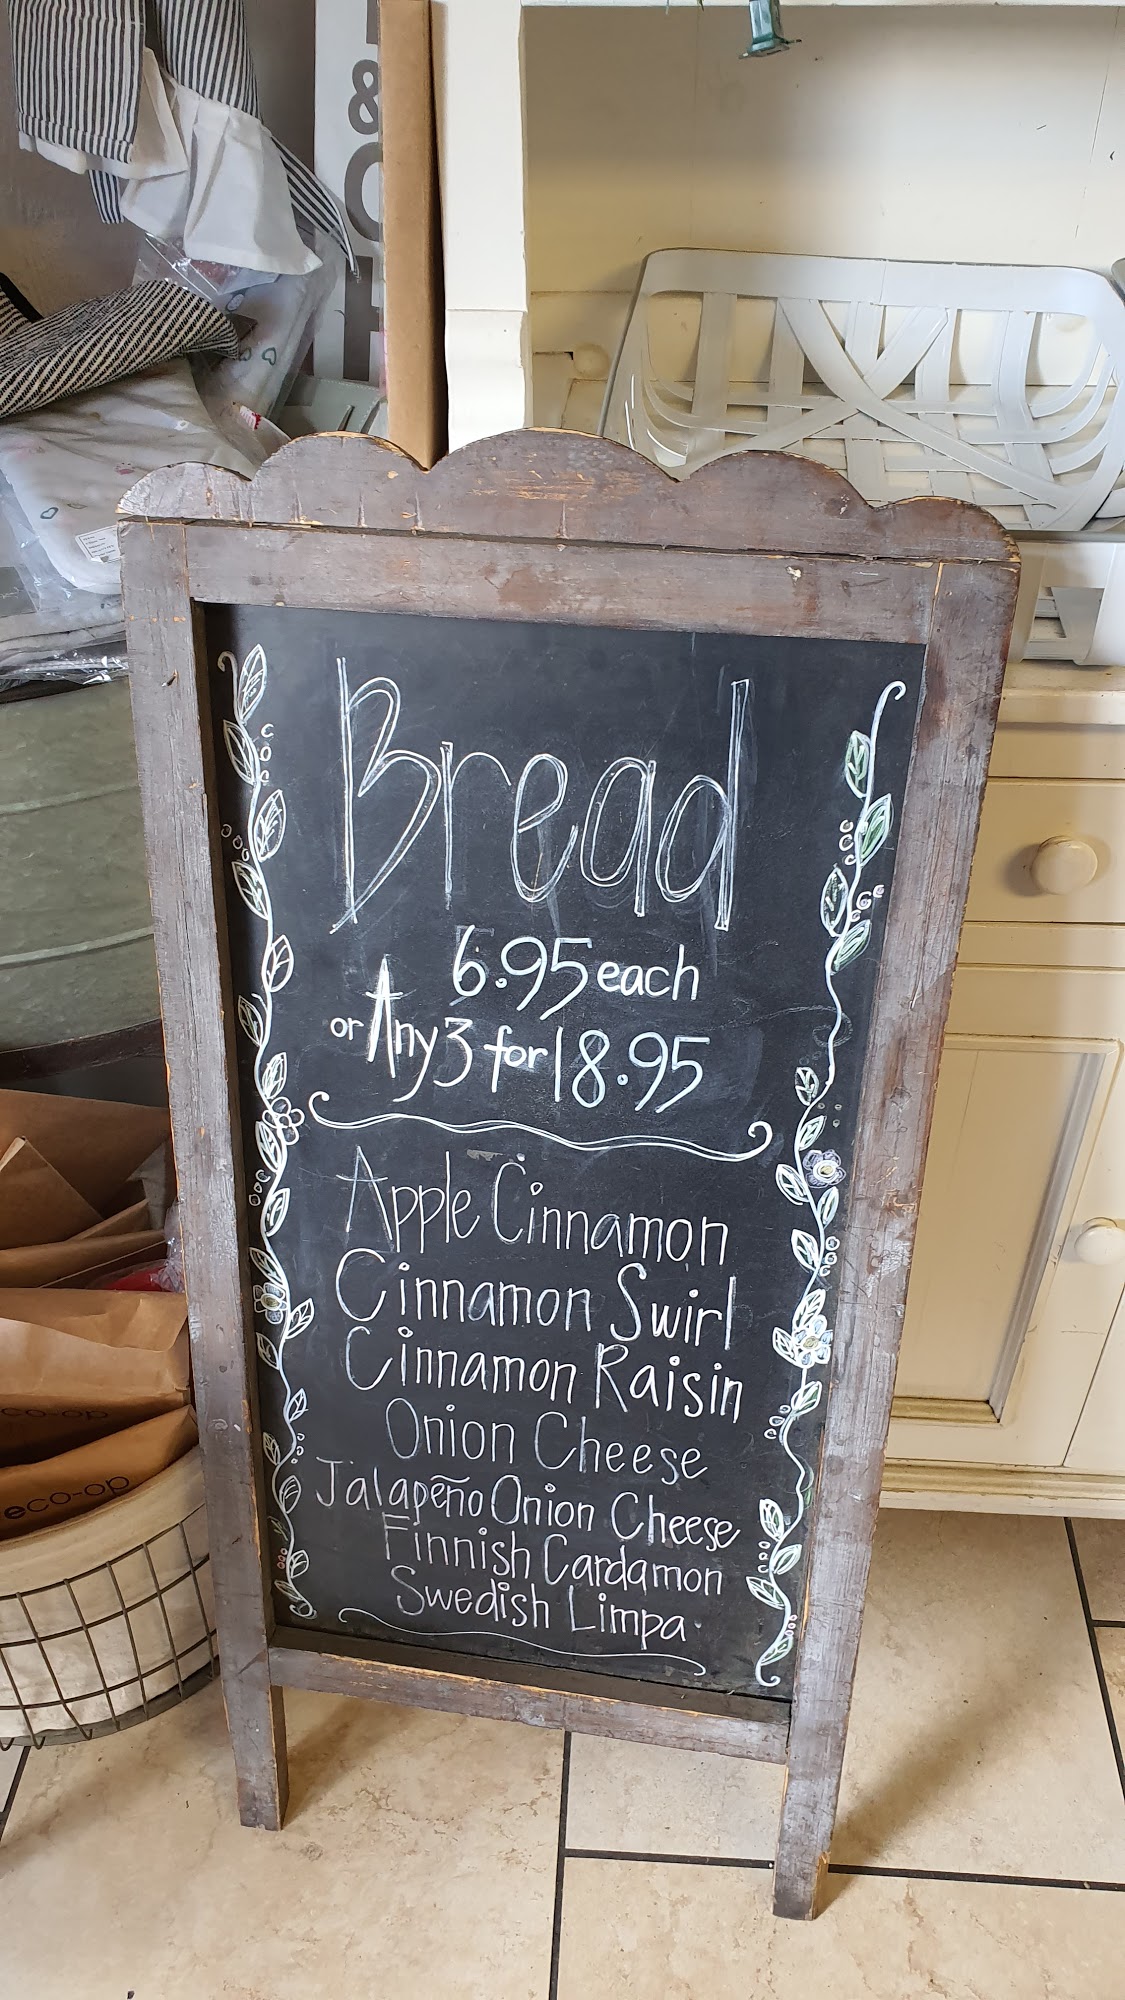 &
Bread
6.95 each
or Any 3 for 18.95
Apple Cinnamon
Cinnamon Swirl
Cinnamon Raisin
Onion Cheese
Jalapeño Onion Cheese
Finnish Cardamon
Swedish Limpa
co-op
eco-op